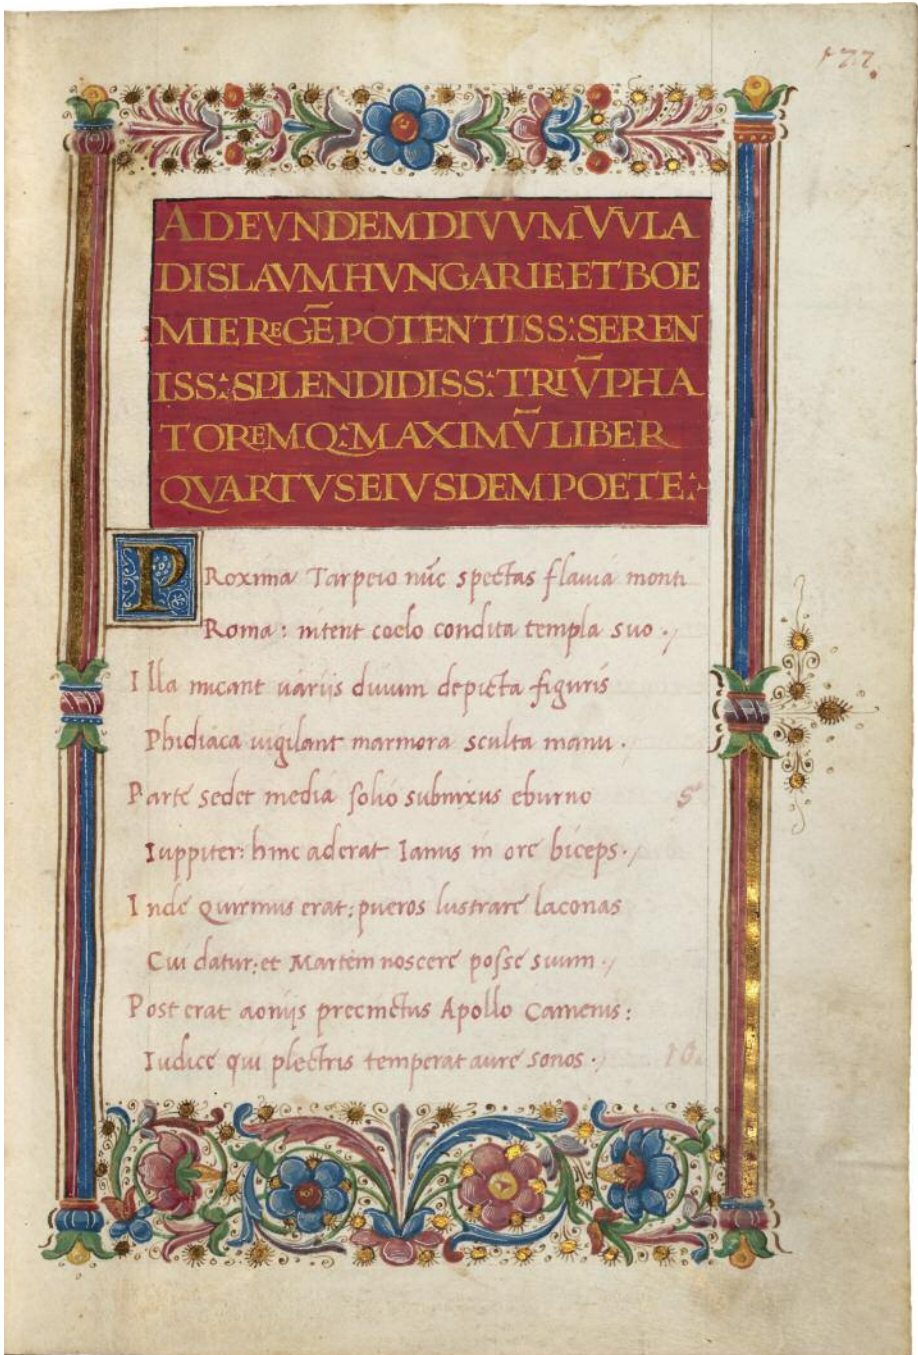 177.
ADEVNDEMDIVVMVVLA
DISLAVMHVNGARIEETBOE
MIEReGĒPOTENTISS:SEREN
ISS:SPLENDIDISS:TRIV̄PHA
TOReMQ:MAXIMV̄LIBER
QVARTVSEIVSDEMPOETE:
PRoxima Tarpeio nūc spectas flauia monti
Roma: nitent coelo condita templa suo.
Illa micant uariis diuum depicta figuris
Phidiaca uigilant marmora sculta manu.
Parte sedet media solio subnixus eburno 5
Iuppiter: hinc aderat Ianus in ore biceps.
Inde Quirinus erat: pueros lustrare laconas
Cui datur: et Martem noscere posse suum.
Post erat aoniis precinctus Apollo Camenis:
Iudice qui plectris temperat aure sonos. 10.